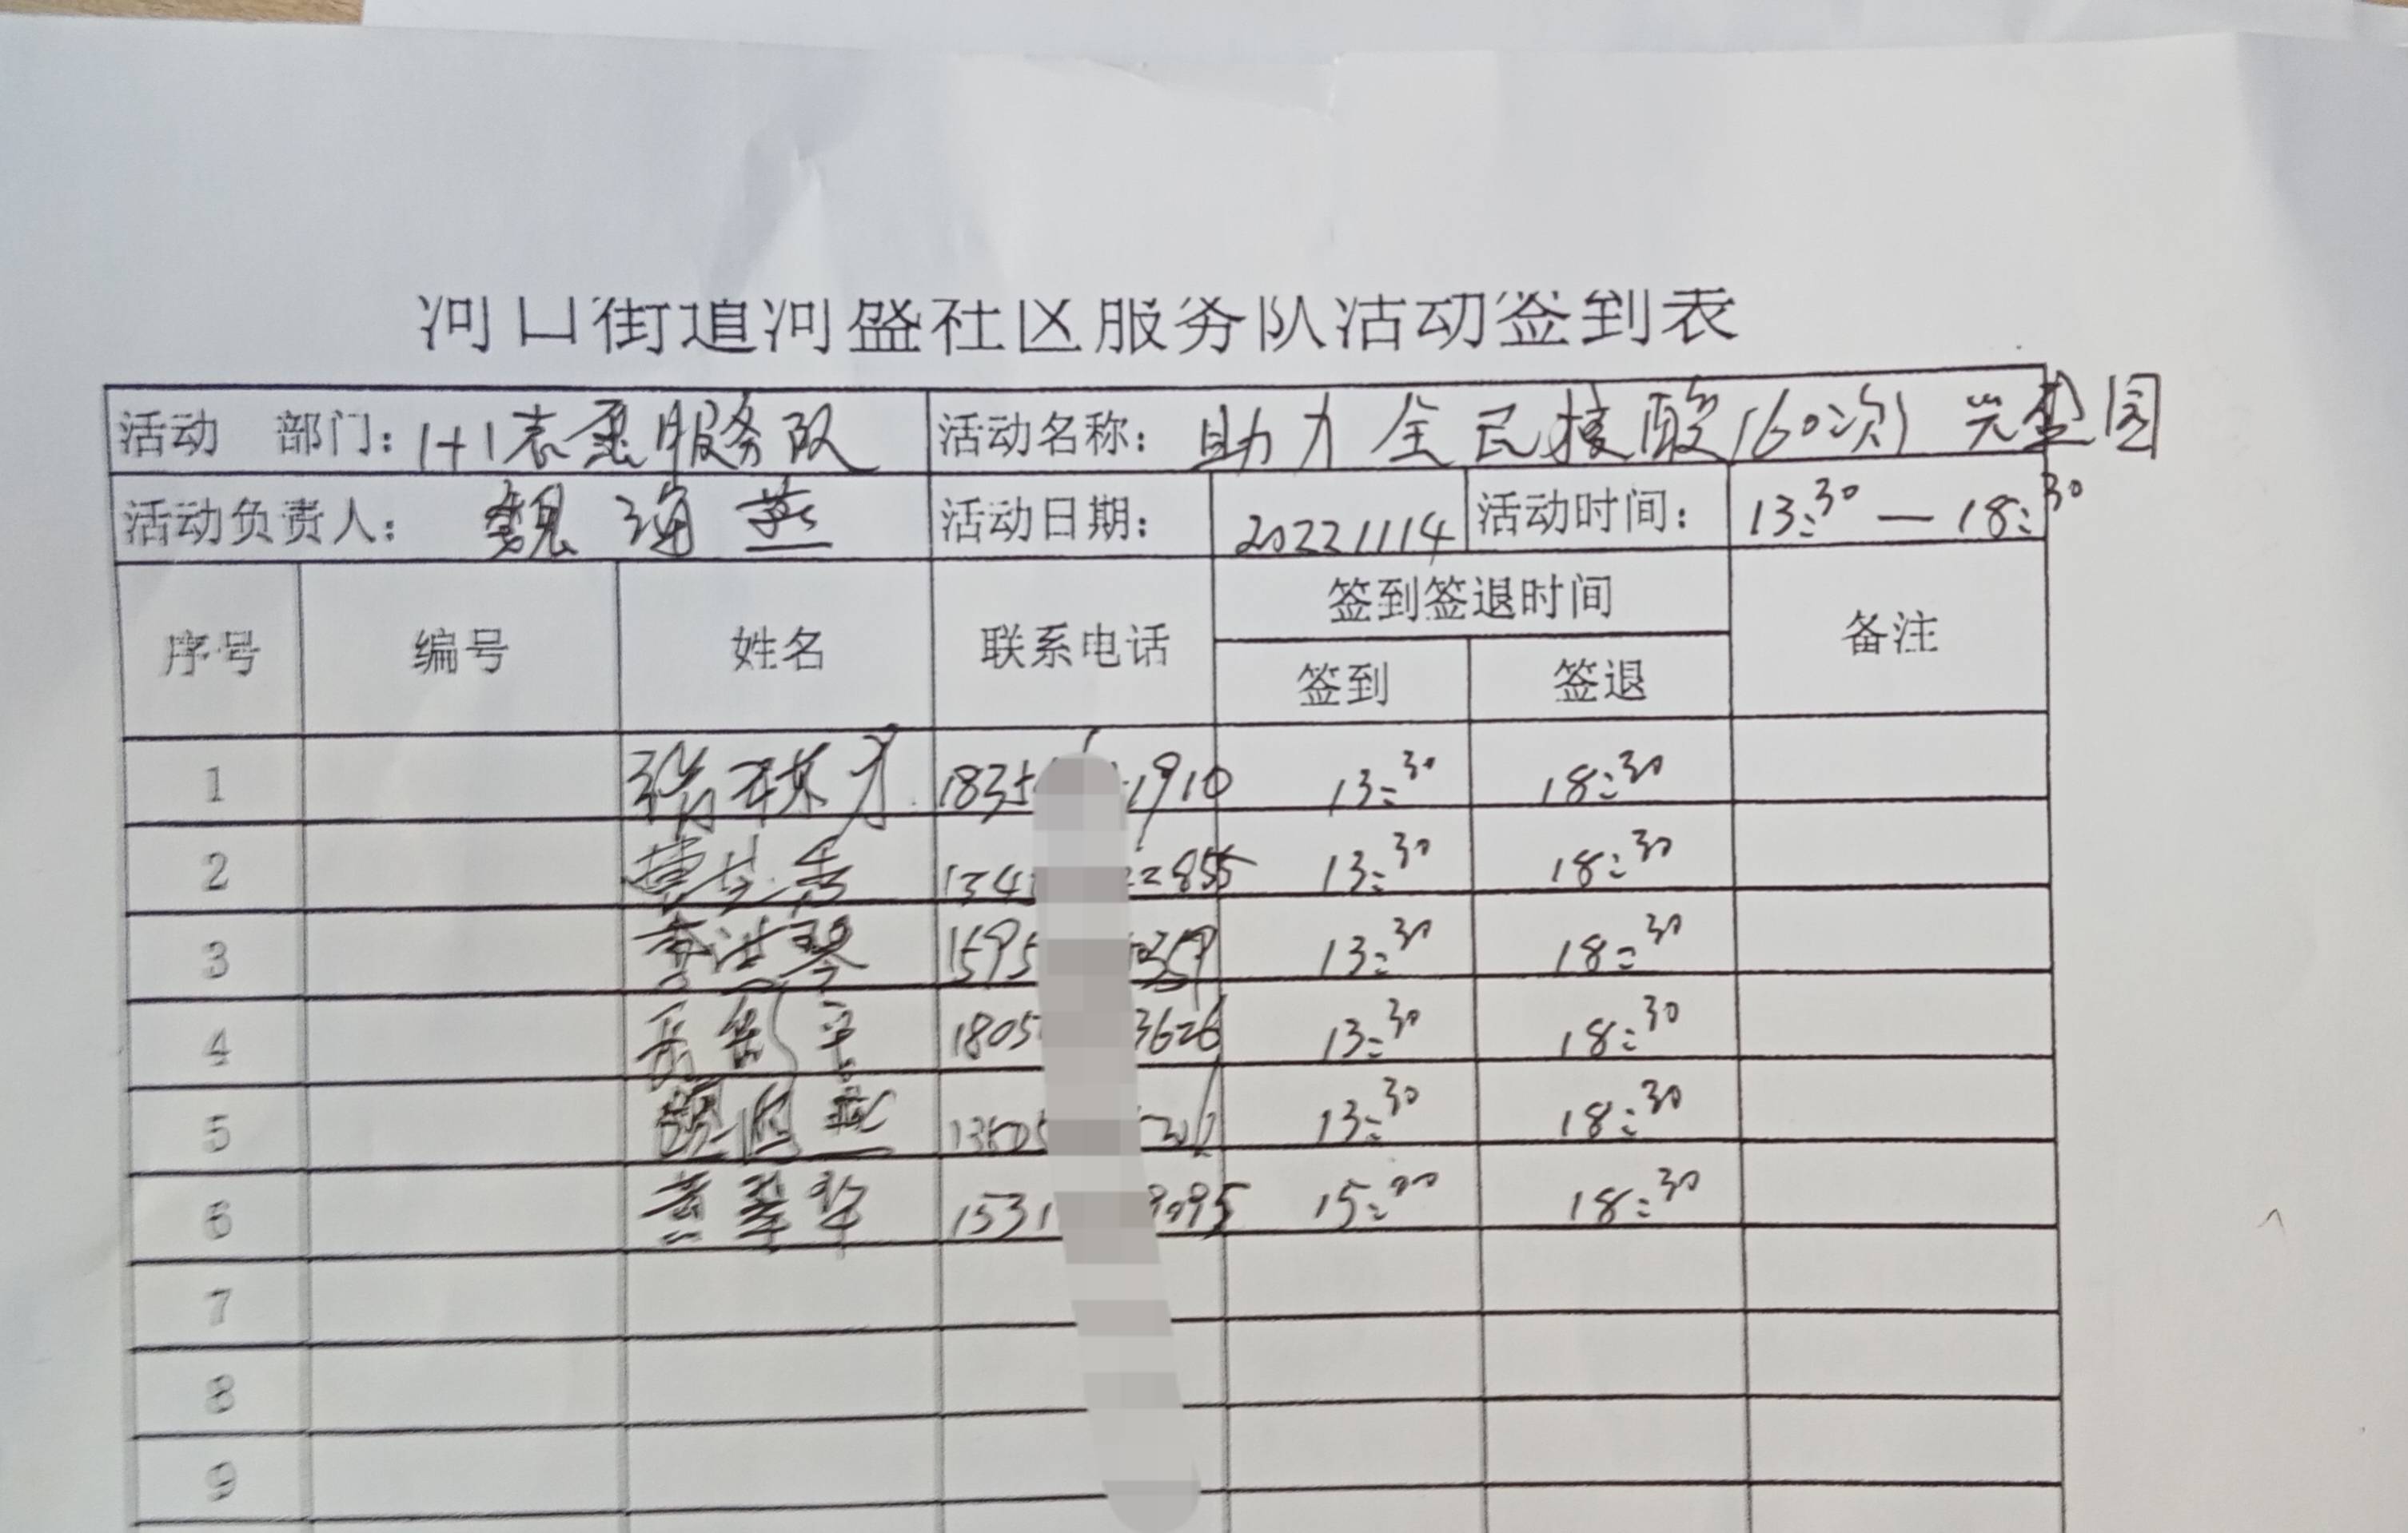 河口街道河盛社区服务队活动签到表
活动 部门: 1+1 服务队 活动名称: 助力全民核酸(60次) 兴盛园
活动负责人: 魏海燕 活动日期: 20221114 活动时间: 13:30—18:30
序号 编号 姓名 联系电话 签到签退时间 备注
签到 签退
1 183 1910 13:30 18:30
2 134 2855 13:30 18:30
3 1595 359 13:30 18:30
4 1805 3626 13:30 18:30
5 魏海燕 13:30 18:30
6 黄翠华 1531 9095 15:00 18:30
7
8
9